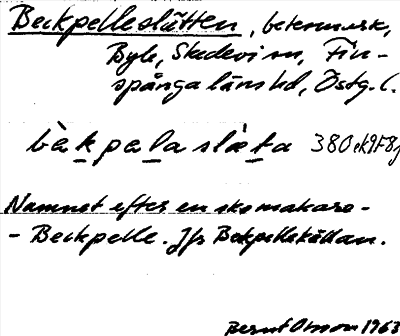 Beckpelleslätten, betesmark,
Byle, Skedevi sn, Fin-
spånga läns hd, Östg. l.
bèkpelaslæta 380ek9F8j
Namnet efter en skomakare -
- Beckpelle. Jfr Beckpellekällan.
Bernt Olsson 1963